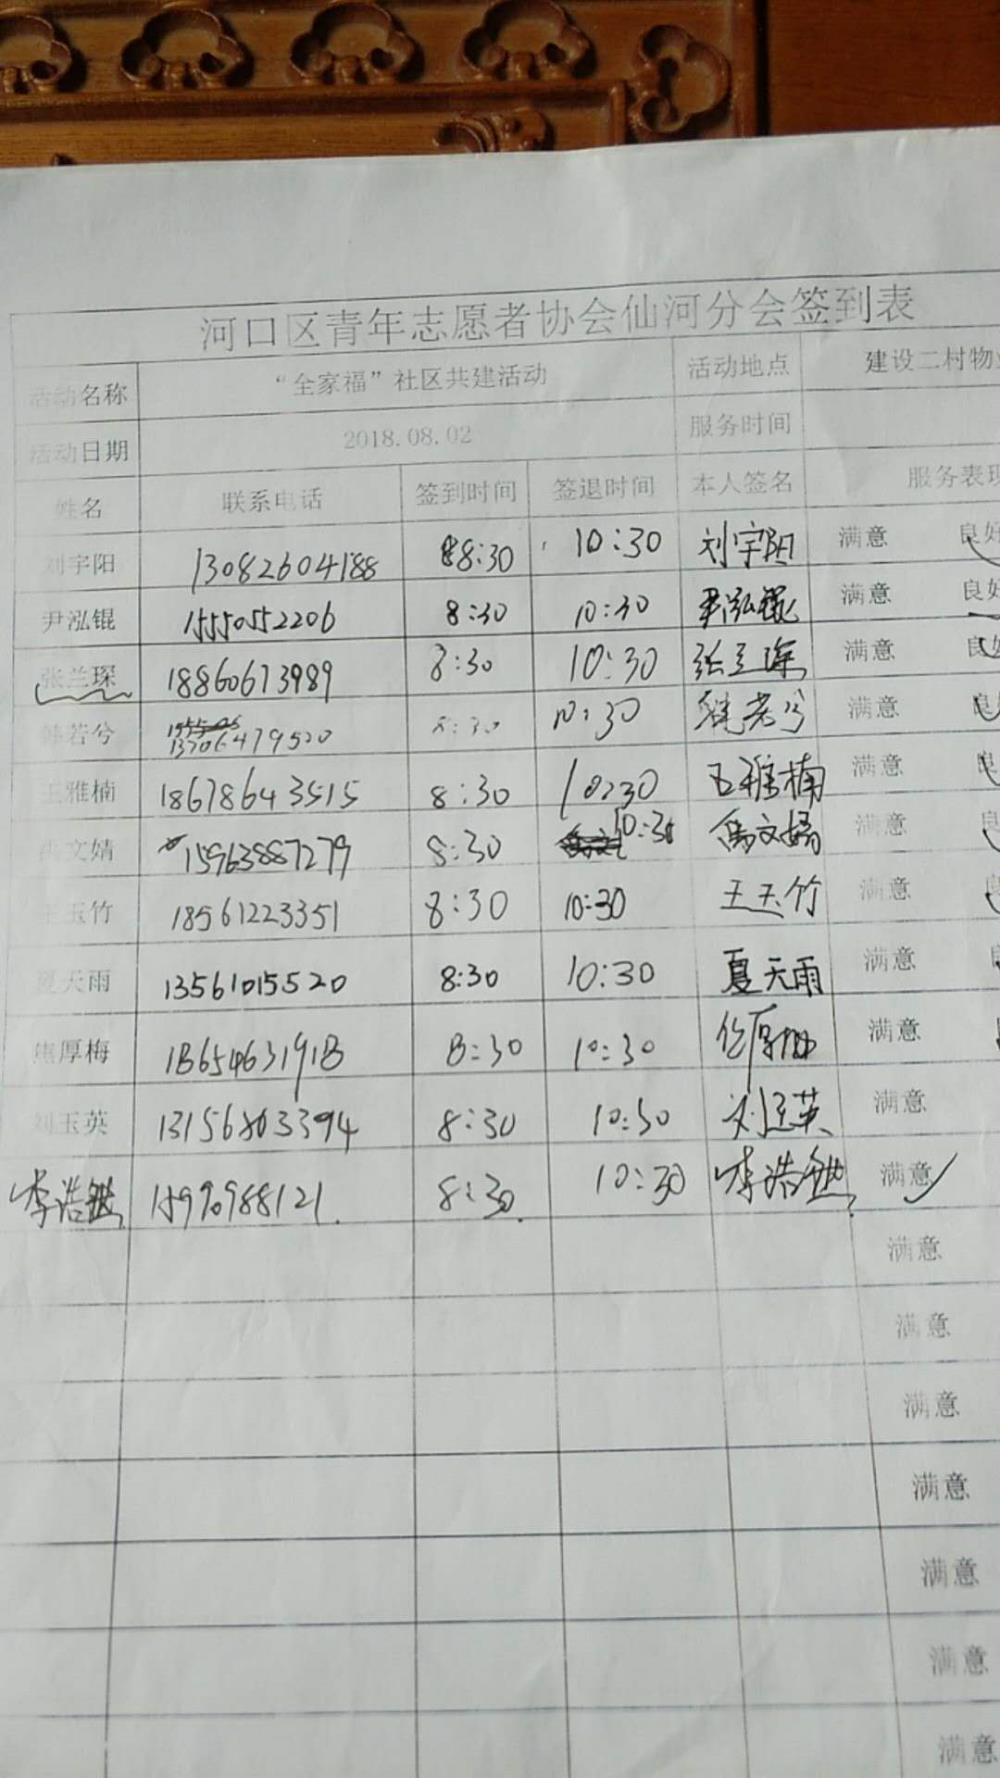 河口区青年志愿者协会仙河分会签到表
活动名称 “全家福”社区共建活动 活动地点 建设二村物业
活动日期 2018.08.02 服务时间
姓名 联系电话 签到时间 签退时间 本人签名 服务表现
刘宇阳 13082604188 8:30 10:30 刘宇阳 满意 良好
尹泓锟 15550552206 8:30 10:30 尹泓锟 满意 良好
张兰琛 18860673989 8:30 10:30 张兰琛 满意 良好
韩若兮 13706479520 8:30 10:30 韩若兮 满意 良
雅楠 18678643515 8:30 10:30 王雅楠 满意 良
文婧 15963887279 8:30 10:30 冯文婧 满意 良
王玉竹 18561223351 8:30 10:30 王玉竹 满意 良
夏天雨 13561015520 8:30 10:30 夏天雨 满意
焦厚梅 18654631918 8:30 10:30 满意
刘玉英 13156803394 8:30 10:30 刘玉英 满意
李浩 8:30 10:30 李浩 满意
满意
满意
满意
满意
满意
满意
满意